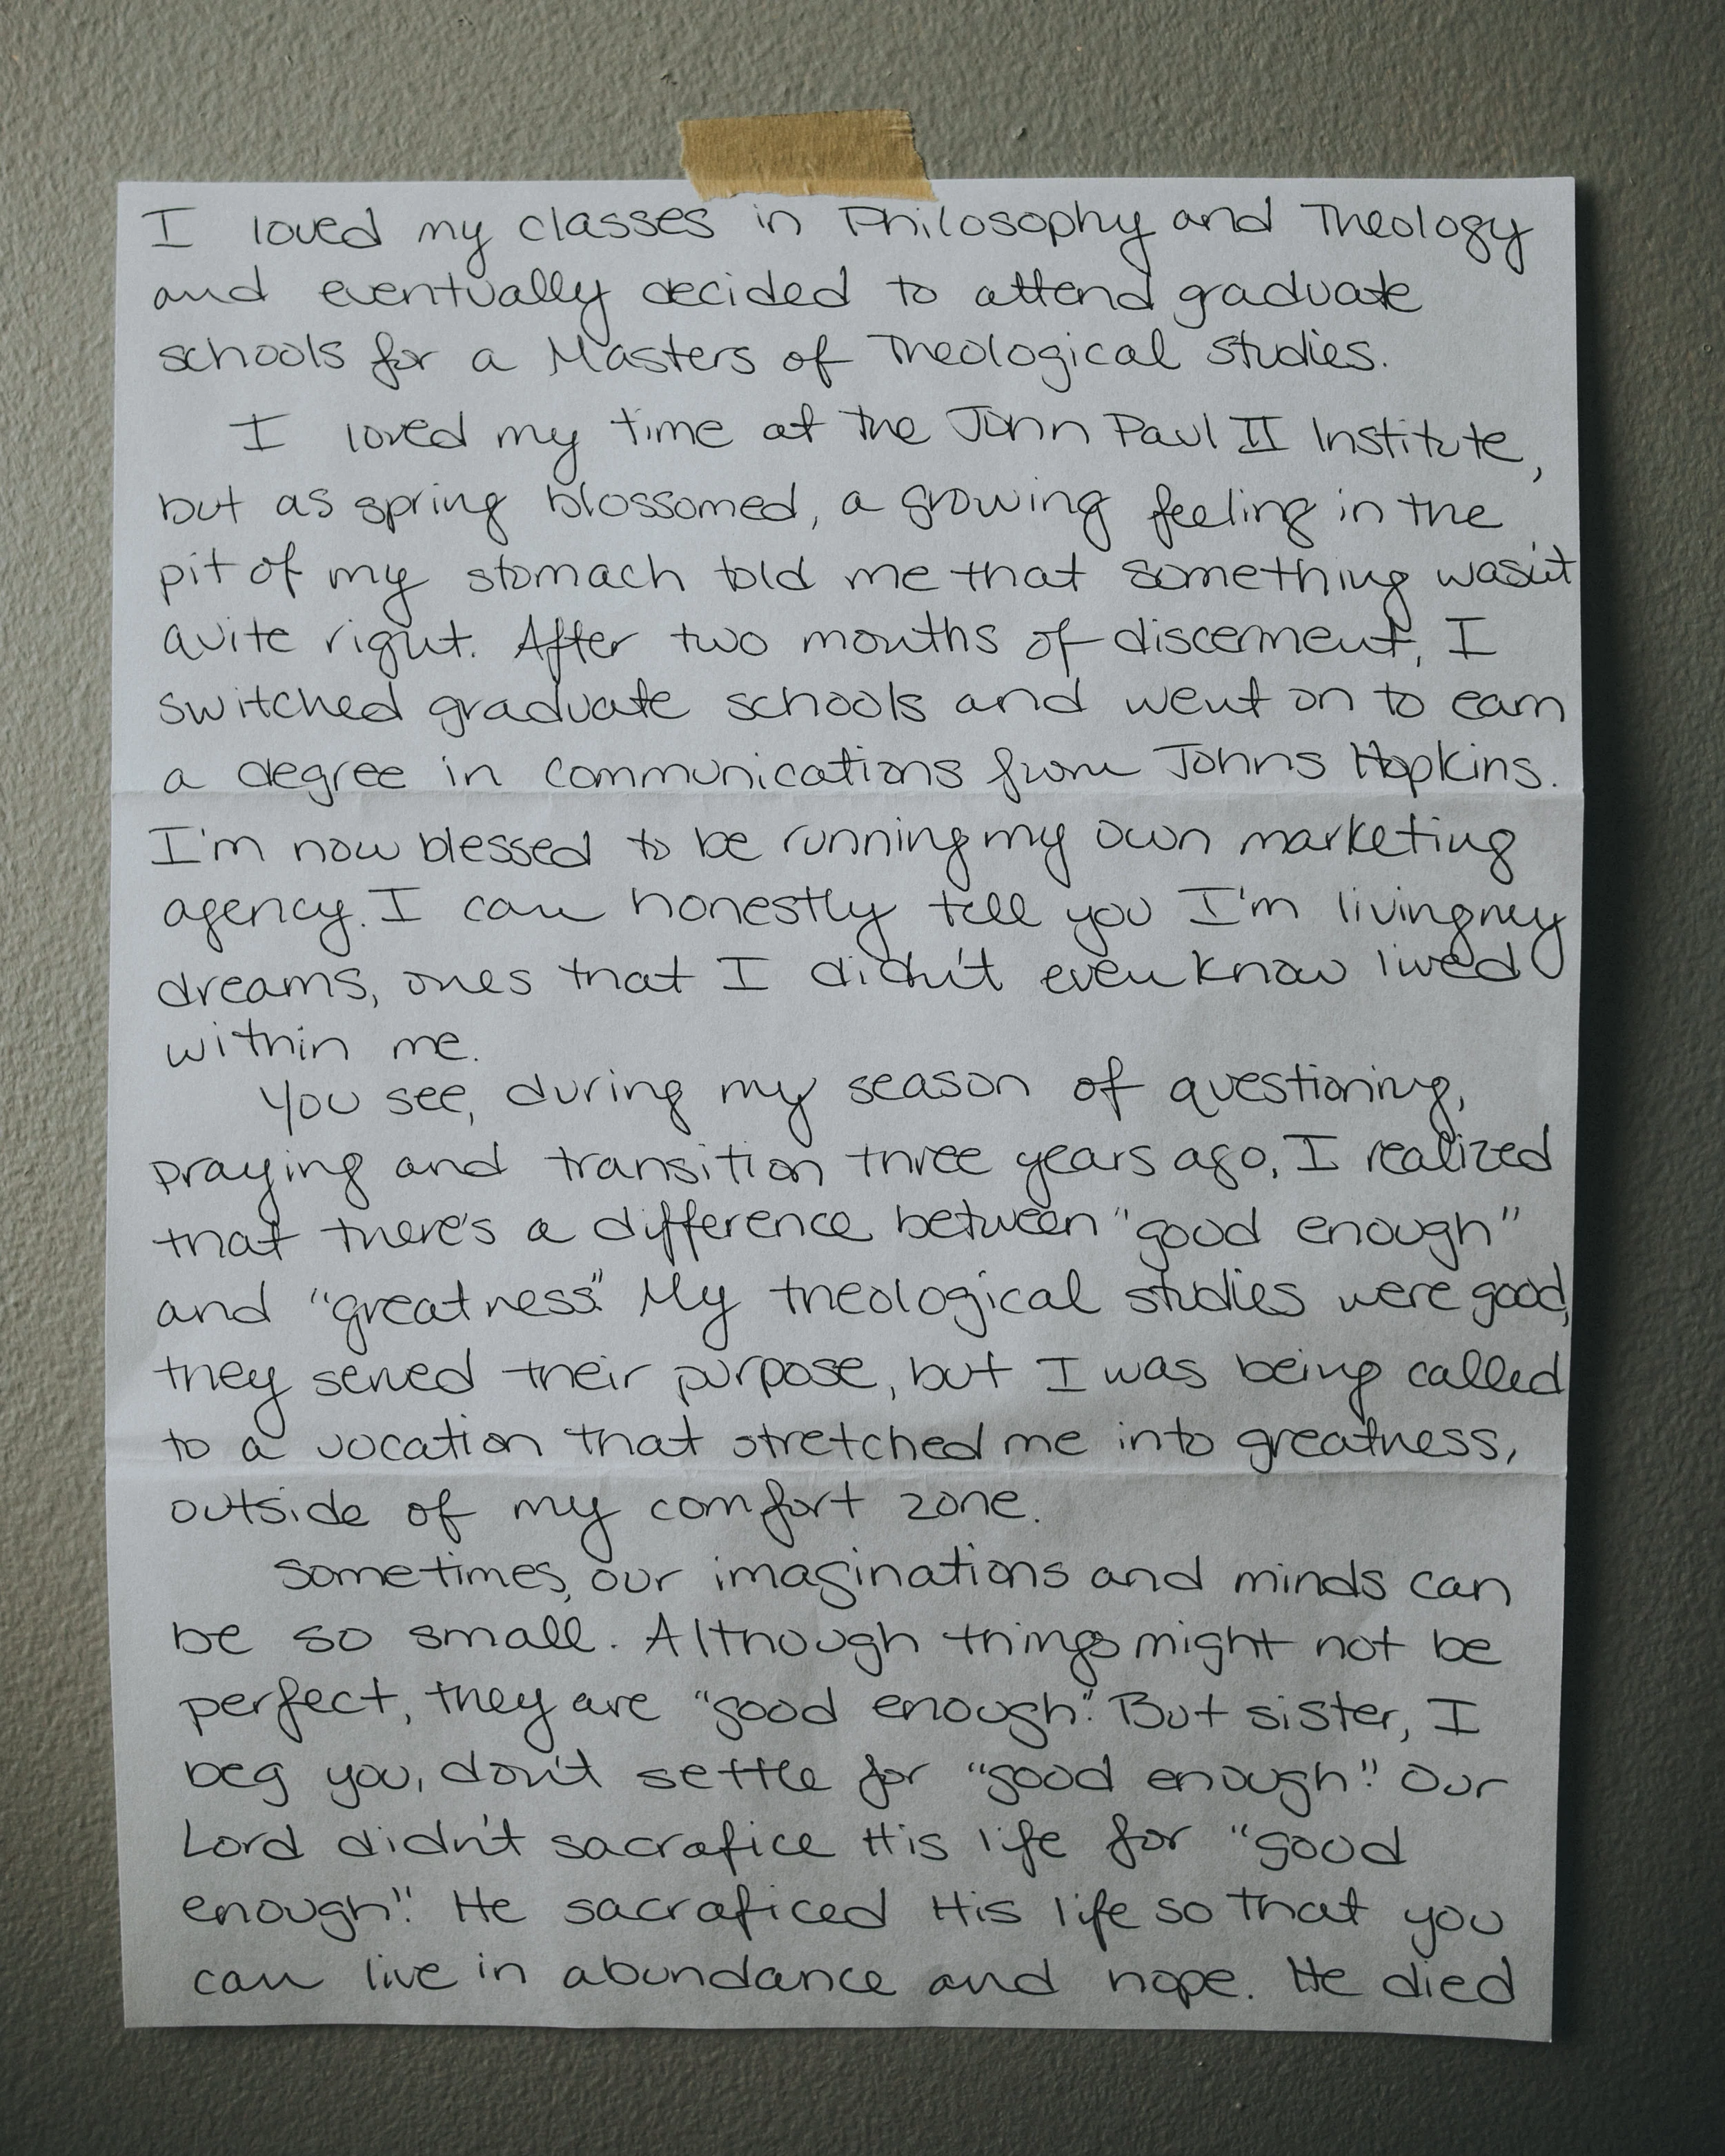 I loved my classes in Philosophy and Theology
and eventually decided to attend graduate
schools for a Masters of Theological studies.
I loved my time at the John Paul II Institute,
but as spring blossomed, a growing feeling in the
pit of my stomach told me that something wasn't
quite right. After two months of discernment, I
switched graduate schools and went on to earn
a degree in communications from Johns Hopkins.
I'm now blessed to be running my own marketing
agency. I can honestly tell you I'm living my
dreams, ones that I didn't even know lived
within me.
You see, during my season of questioning,
praying and transition three years ago, I realized
that there's a difference between "good enough"
and "greatness." My theological studies were good,
they served their purpose, but I was being called
to a vocation that stretched me into greatness,
outside of my comfort zone.
Sometimes, our imaginations and minds can
be so small. Although things might not be
perfect, they are "good enough". But sister, I
beg you, don't settle for "good enough". Our
Lord didn't sacrafice His life for "good
enough". He sacraficed His life so that you
can live in abundance and hope. He died